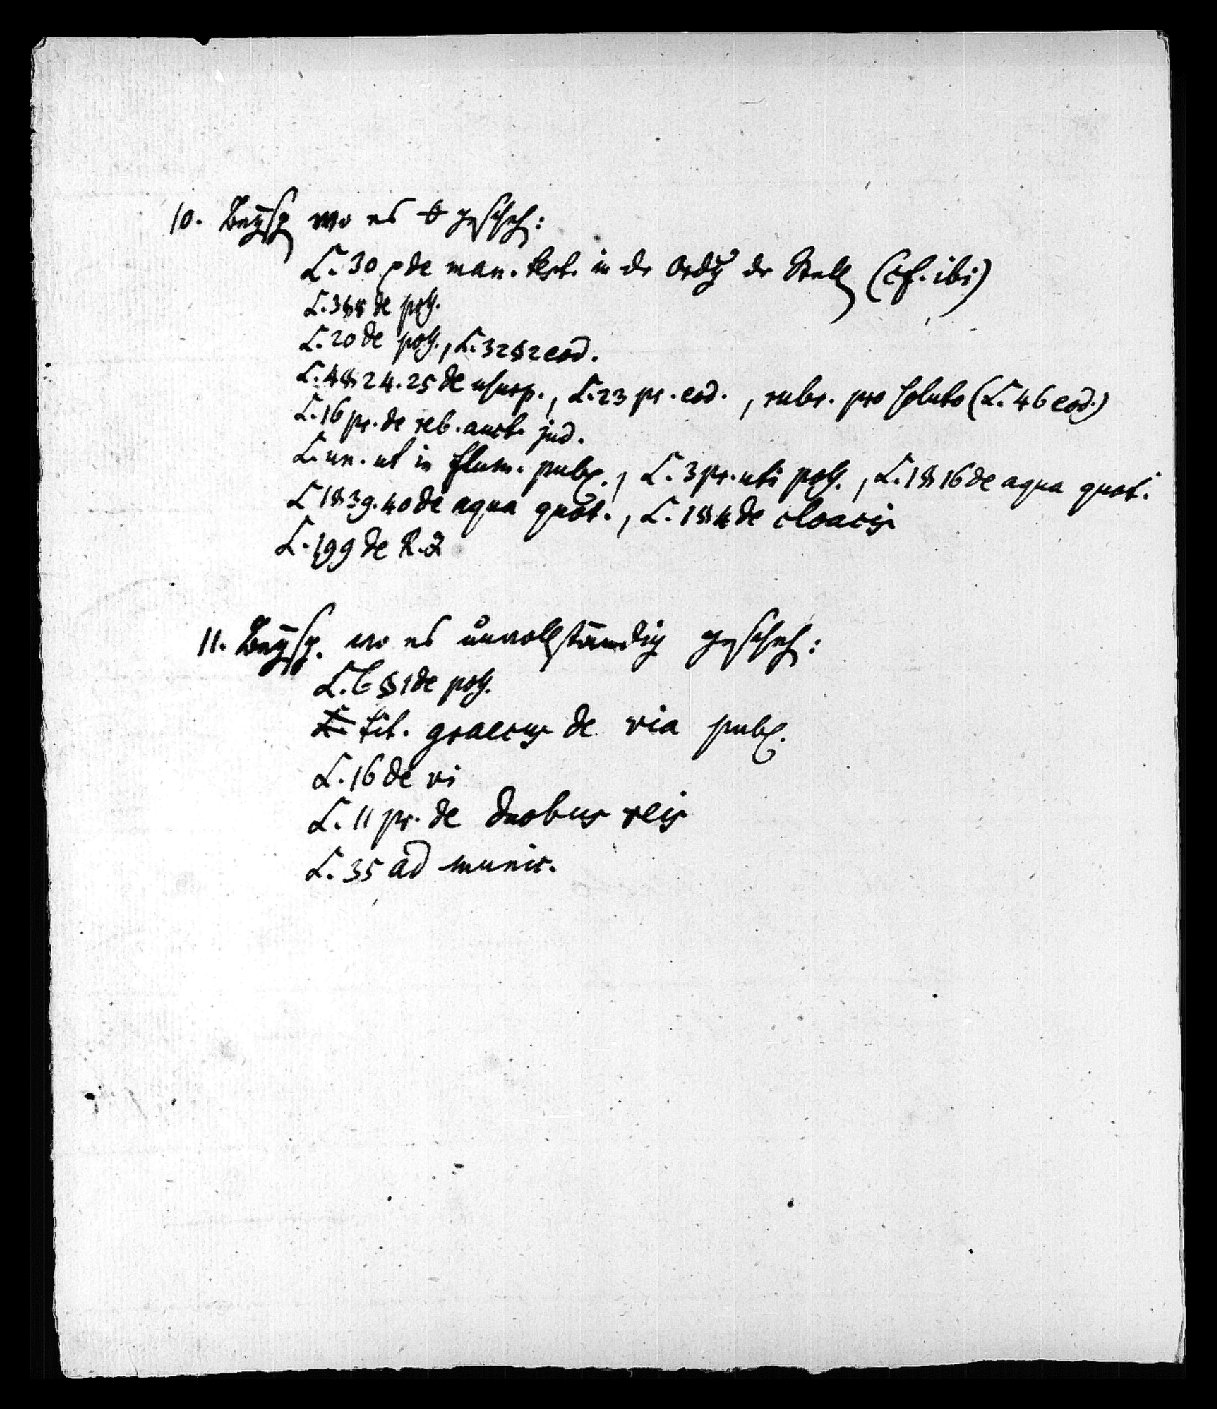 10. Beysp wo es + gescheh:
L. 30 pde man. test. in dr Ordg dr Stell (cf. ibi)
L. 3 § 8 de poss.
L. 20 de poss., L. 32 § 2 eod.
L. 4 § 24. 25 de usurp., L. 23 pr. eod., rubr. pro soluto (L. 46 eod.)
L. 16 pr. de reb. auct. jud.
L. un. ut in flum. publ., L. 3 pr. uti poss., L. 1 § 16 de aqua quot.
L 1 § 39. 40 de aqua quot., L. 1 § 4 de cloacis
L. 199 de R. J
11. Beysp. wo es unvollständig gescheh:
L. 6 § 1 de poss.
tit. graecus de via publ.
L. 16 de vi
L. 11 pr. de duobus reis
L. 35 ad munic.